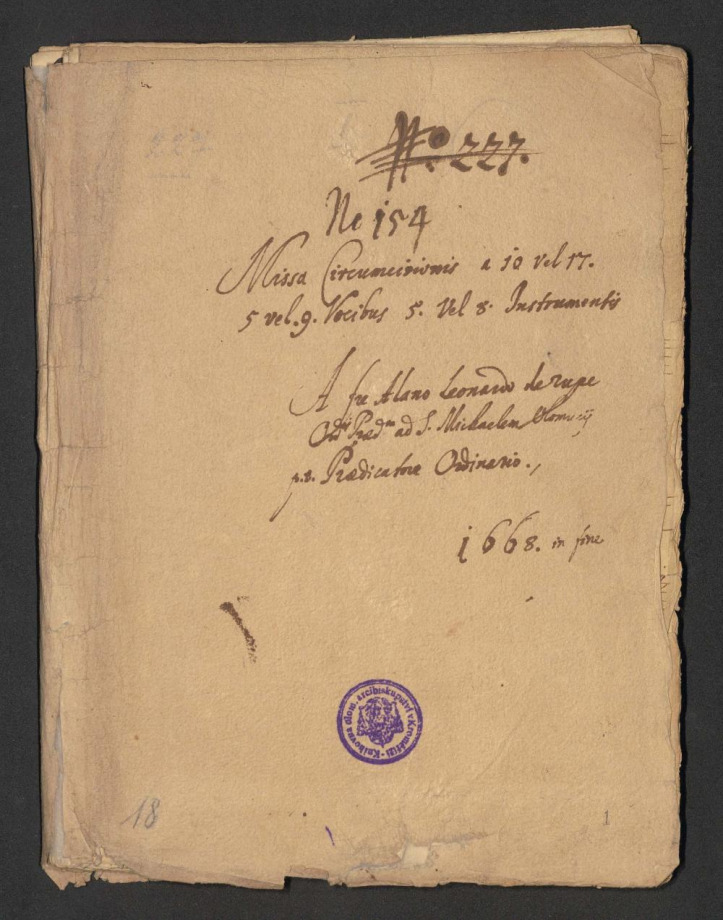 No. 227.
No 154
Missa Circumcisionis a 10 vel 17.
5 vel. 9. Vocibus 5. Vel 8. Instrumentis
A fre Alano Leonardo de rupe
Ordis Prædm ad S. Michaelem Olomucij
p.t. Prædicatore Ordinario.,
1668. in fine
Knihovna olom. arcibiskupství v Kroměříži
18
1